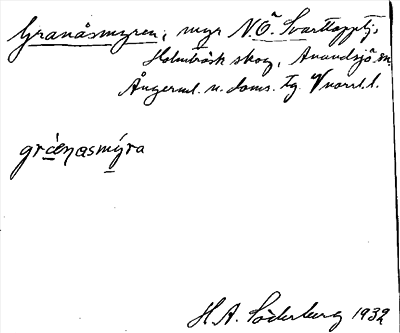 Granåsmyren, myr N.Ö. Svarttopptj,
Holmträsk skog, Anundsjö sn.
Ångerml. n. doms. tg. V norrl. l.
gránasmýra
H A. Söderberg 1932